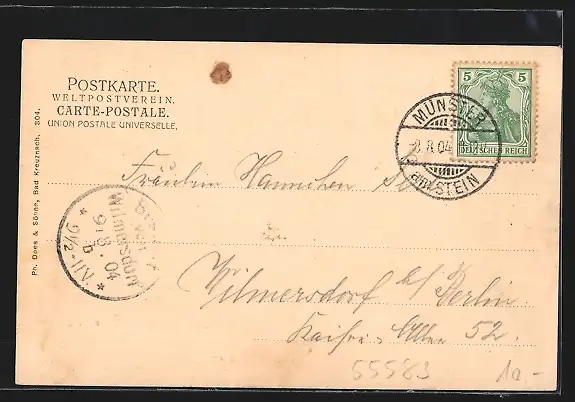 POSTKARTE.
WELTPOSTVEREIN.
CARTE-POSTALE.
UNION POSTALE UNIVERSELLE.
Ph. Does & Söhne, Bad Kreuznach. 304.
5 5
DEUTSCHES REICH
MÜNSTER
8.8.04
STEIN
Fräulein Hannchen
Wilmersdorf
9.8.04
9½-
Wilmersdorf b/ Berlin.
Kaiser Allee 52.
55583 10-